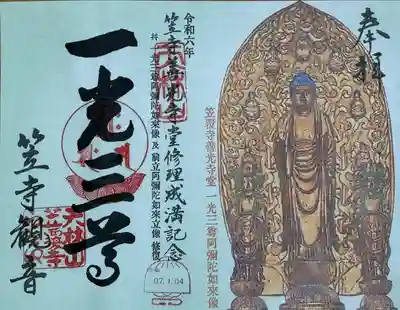 奉拝
笠覆寺善光寺堂 一光三尊阿彌陀如来像
令和六年
笠寺善光寺堂修理成満記念
并 一光三尊阿彌陀如来像 及 前立阿彌陀如来立像 修復
07.1.04
一光三尊
笠寺観音
天林山
笠覆寺